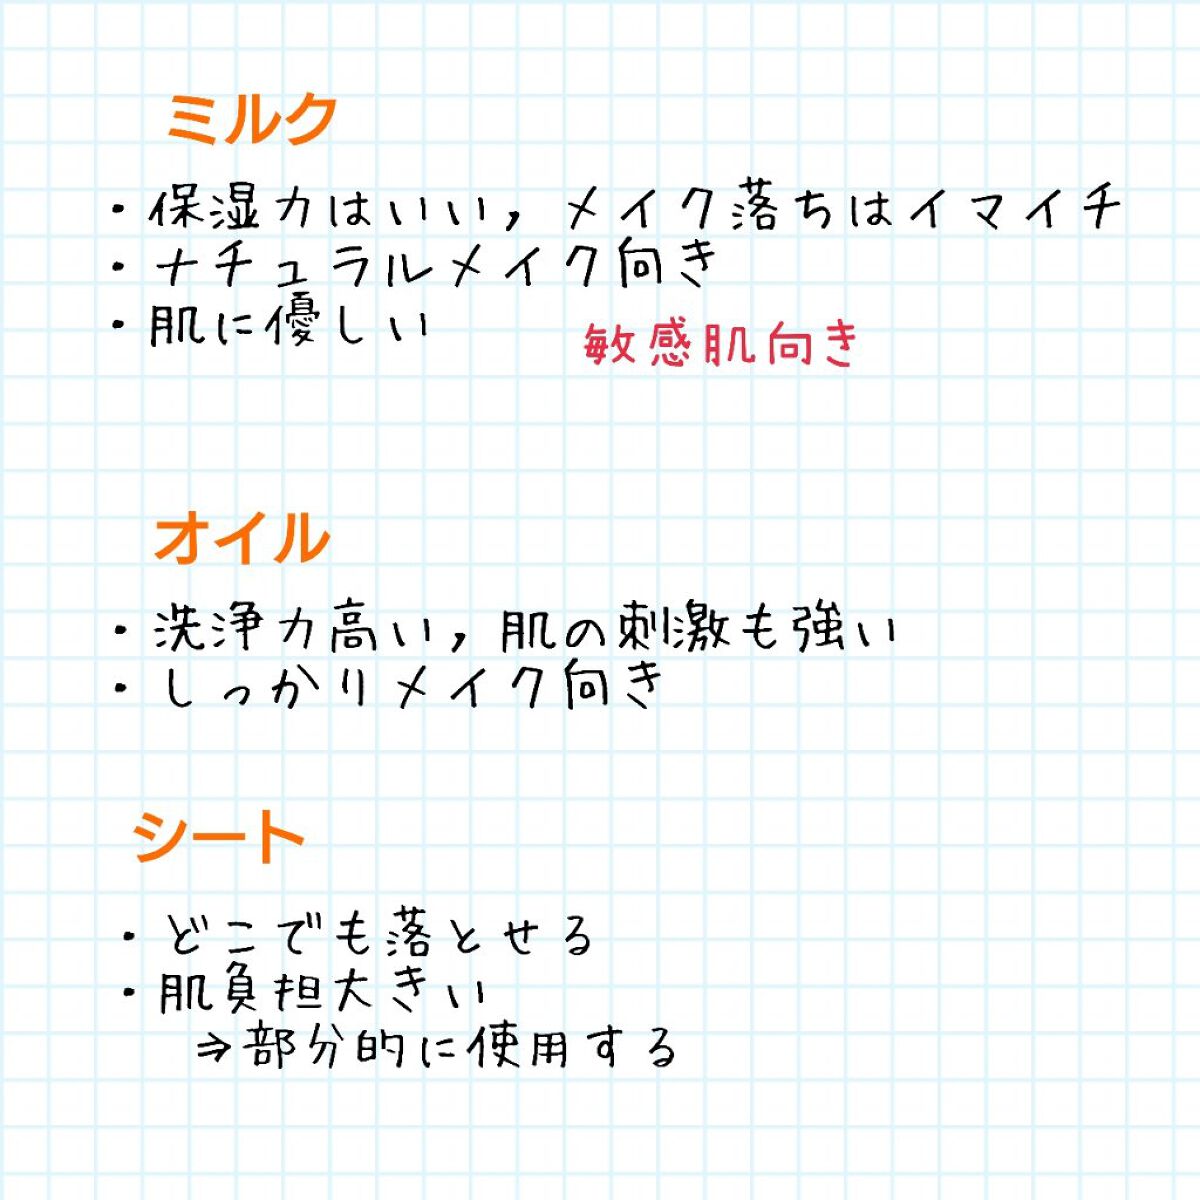 ミルク
・保湿力はいい，メイク落ちはイマイチ
・ナチュラルメイク向き
・肌に優しい
敏感肌向き
オイル
・洗浄力高い，肌の刺激も強い
・しっかりメイク向き
シート
・どこでも落とせる
・肌負担大きい
⇒部分的に使用する